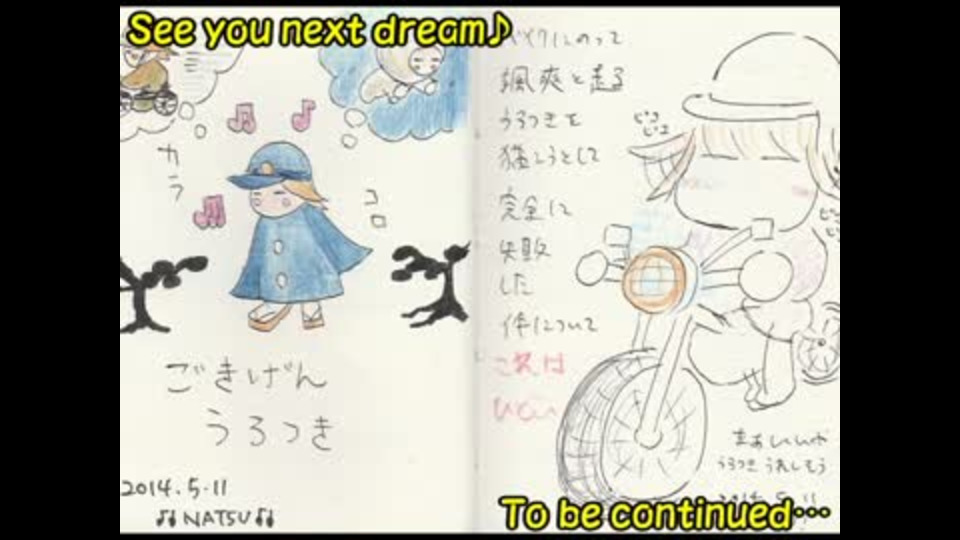 See you next dream♪
カラ
コロ
ごきげん
うろつき
2014.5.11
♫ NATSU ♫
バイクにのって
颯爽と走る
うろつきを
描こうとして
完全に
失敗
した
件について
これは
ひどい
まぁいいや
うろつきうれしそう
2014.5.11
To be continued…